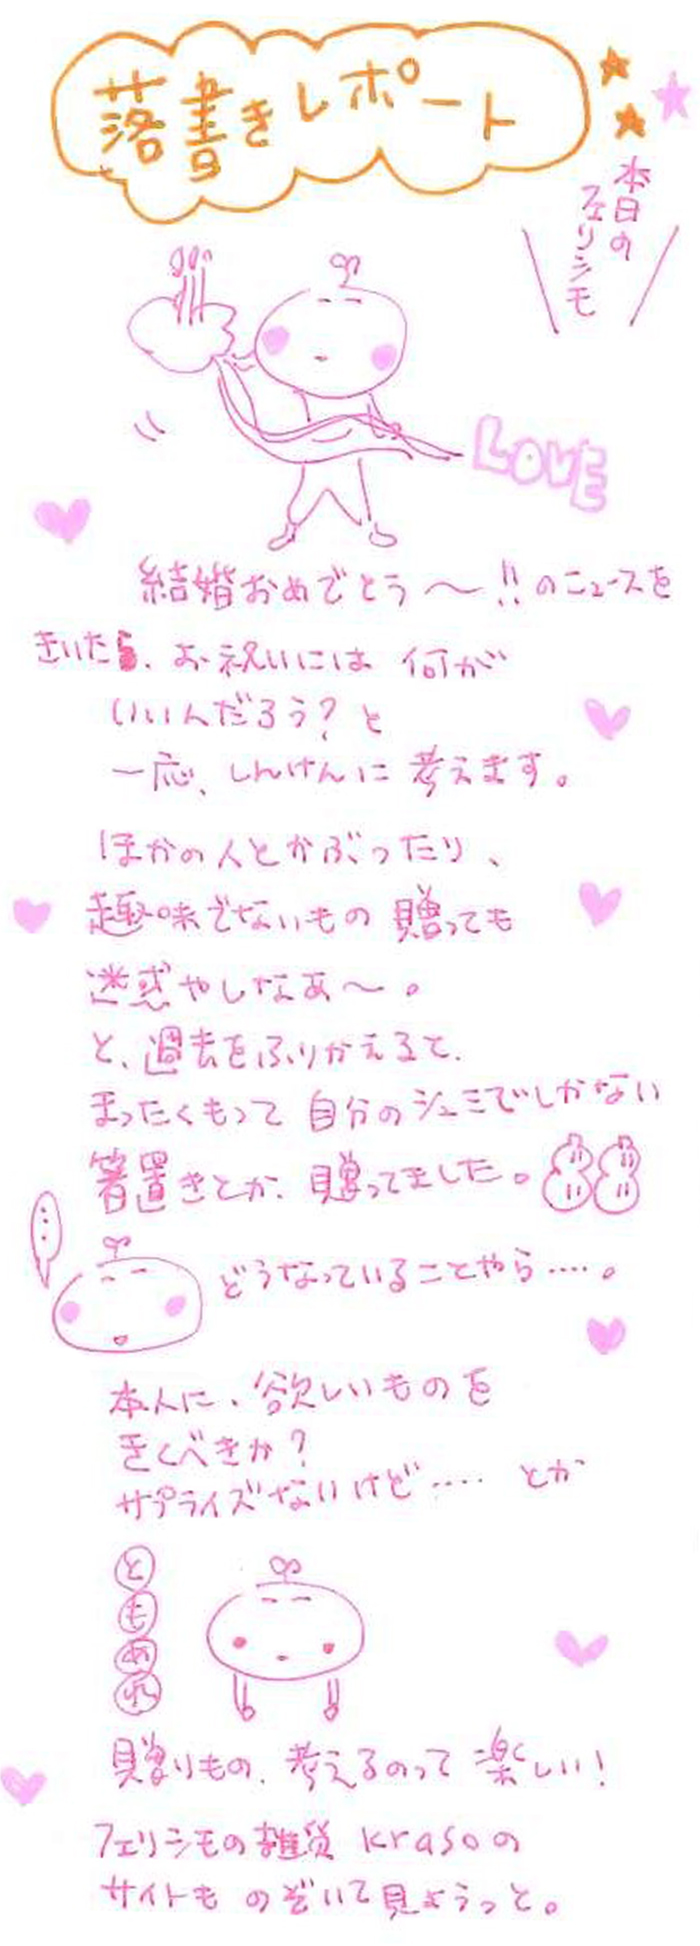 落書きレポート
本日の
フェリシモ
LOVE
結婚おめでとう〜!!のニュースを
きいたら、お祝いには 何が
いいんだろう?と
一応、しんけんに考えます。
ほかの人とかぶったり、
趣味でないもの 贈っても
迷惑やしなぁ〜。
と、過去をふりかえると、
まったくもって 自分のシュミでしかない
箸置きとか、贈ってました。
どうなっていることやら…..。
本人に、欲しいものを
きくべきか?
サプライズないけど….. とか
ともあれ
贈りもの、考えるのって 楽しい!
フェリシモの雑貨 krasoの
サイトも のぞいて見ようっと。